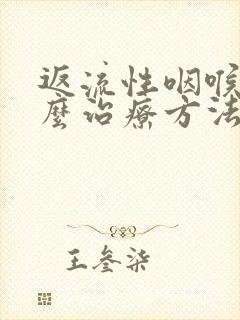 返流性咽喉
麼治療方法
王參柒